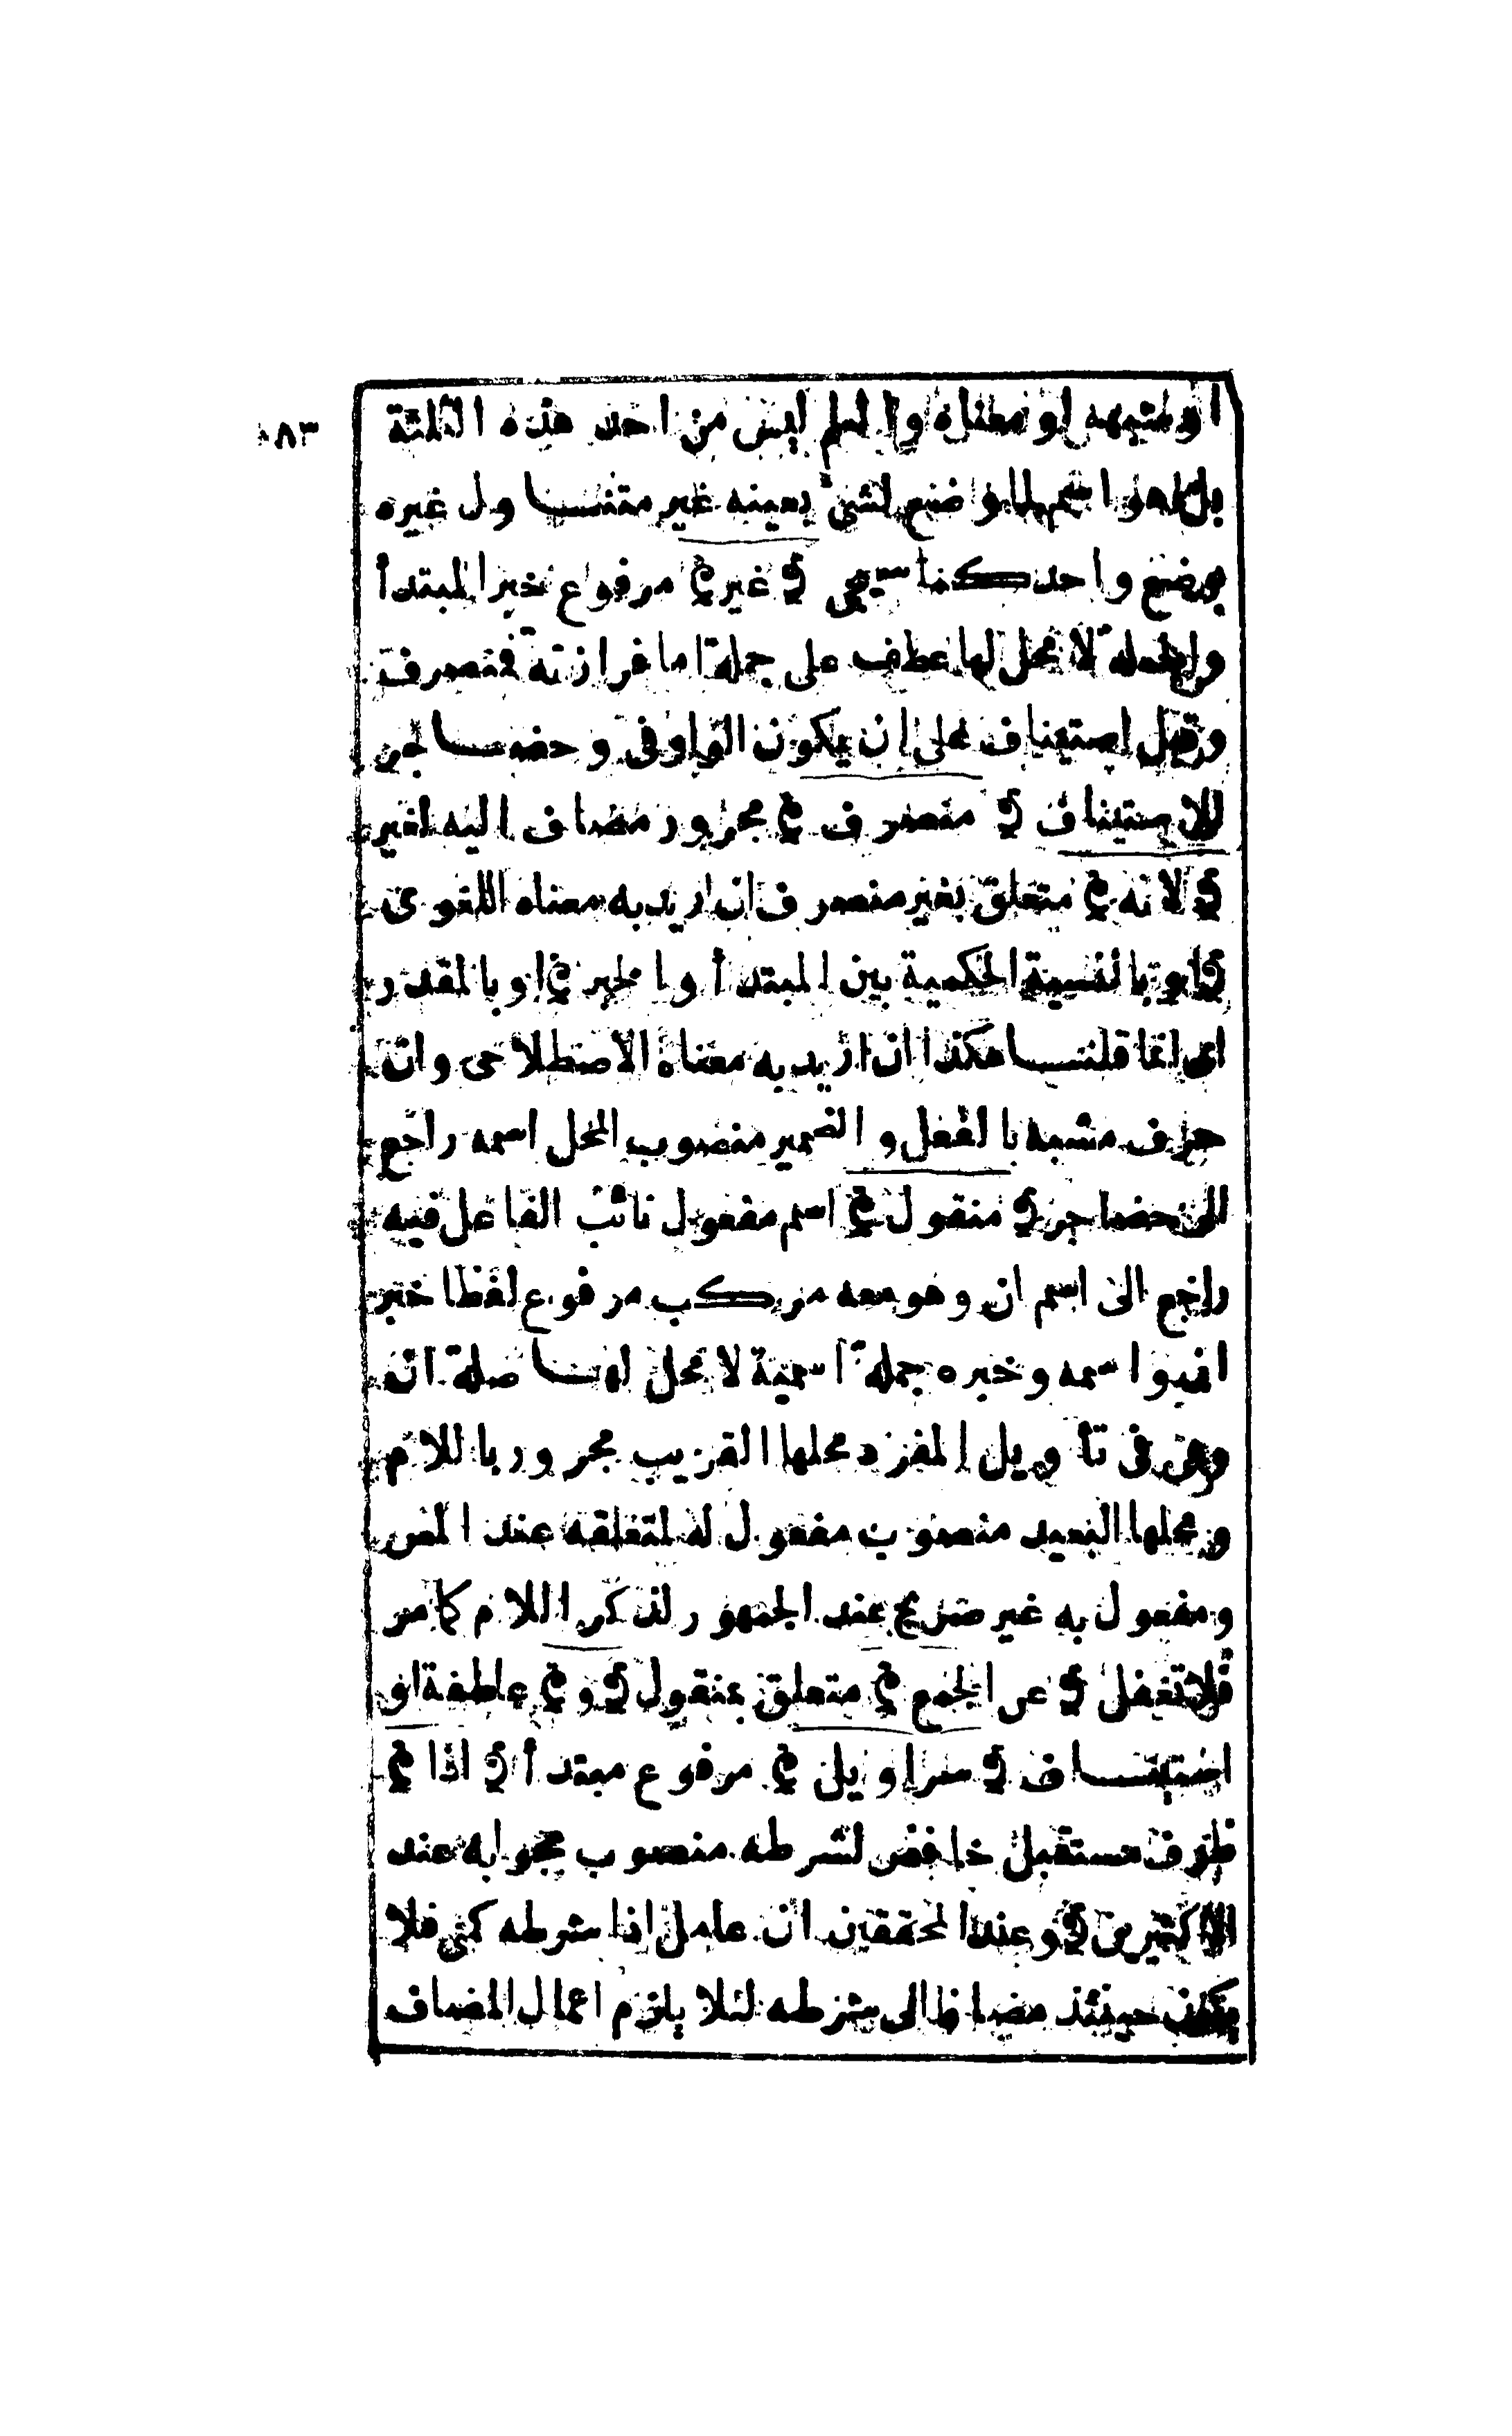 ٠٨٣
او شبهه او معناه والعلم ليس من احد هذه الثلثة
بل هو اسم لما وضع لشئ بعينه غير متنـــا ول غيره
بوضع واحد كما سيجى ﴿ غير ﴾ مرفوع خبر المبتدأ
والجملة لا محل لها عطف على جملة اما فرازنة فمنصرف
وقيل استيناف على ان يكون الواو فى وحضـــاجر
للاستيناف ﴿ منصرف ﴾ مجرور مضاف اليه لغير
﴿ لانه ﴾ متعلق بغير منصرف ان اريد به معناه اللغوى
او بالنسبة الحكمية بين المبتدأ والخبر او بالمقدر
اى انما قلنـــا هكذا ان اريد به معناه الاصطلاحى وان
حرف مشبه بالفعل والضمير منصوب المحل اسمه راجع
الى حضاجر ﴿ منقول ﴾ اسم مفعول نائب الفاعل فيه
راجع الى اسم ان وهو معه مركب مرفوع لفظا خبر
ان واسمه وخبره جملة اسمية لا محل لهـــا صلة ان
وهى فى تأويل المفرد محلها القريب مجرور باللام
ومحلها البعيد منصوب مفعول له لمتعلقه عند المص
ومفعول به غير صريح عند الجمهور لذكر اللام كما مر
فلا تغفل ﴿ عن الجمع ﴾ متعلق بمنقول ﴿ و ﴾ عاطفة او
استينـــاف ﴿ سراويل ﴾ مرفوع مبتدأ ﴿ اذا ﴾
ظرف مستقبل خافض لشرطه منصوب بجوابه عند
الاكثرين وعند المحققين ان عامل اذا شرطه كمتى فلا
يكون حينئذ مضافا الى شرطه لئلا يلزم اعمال المضاف